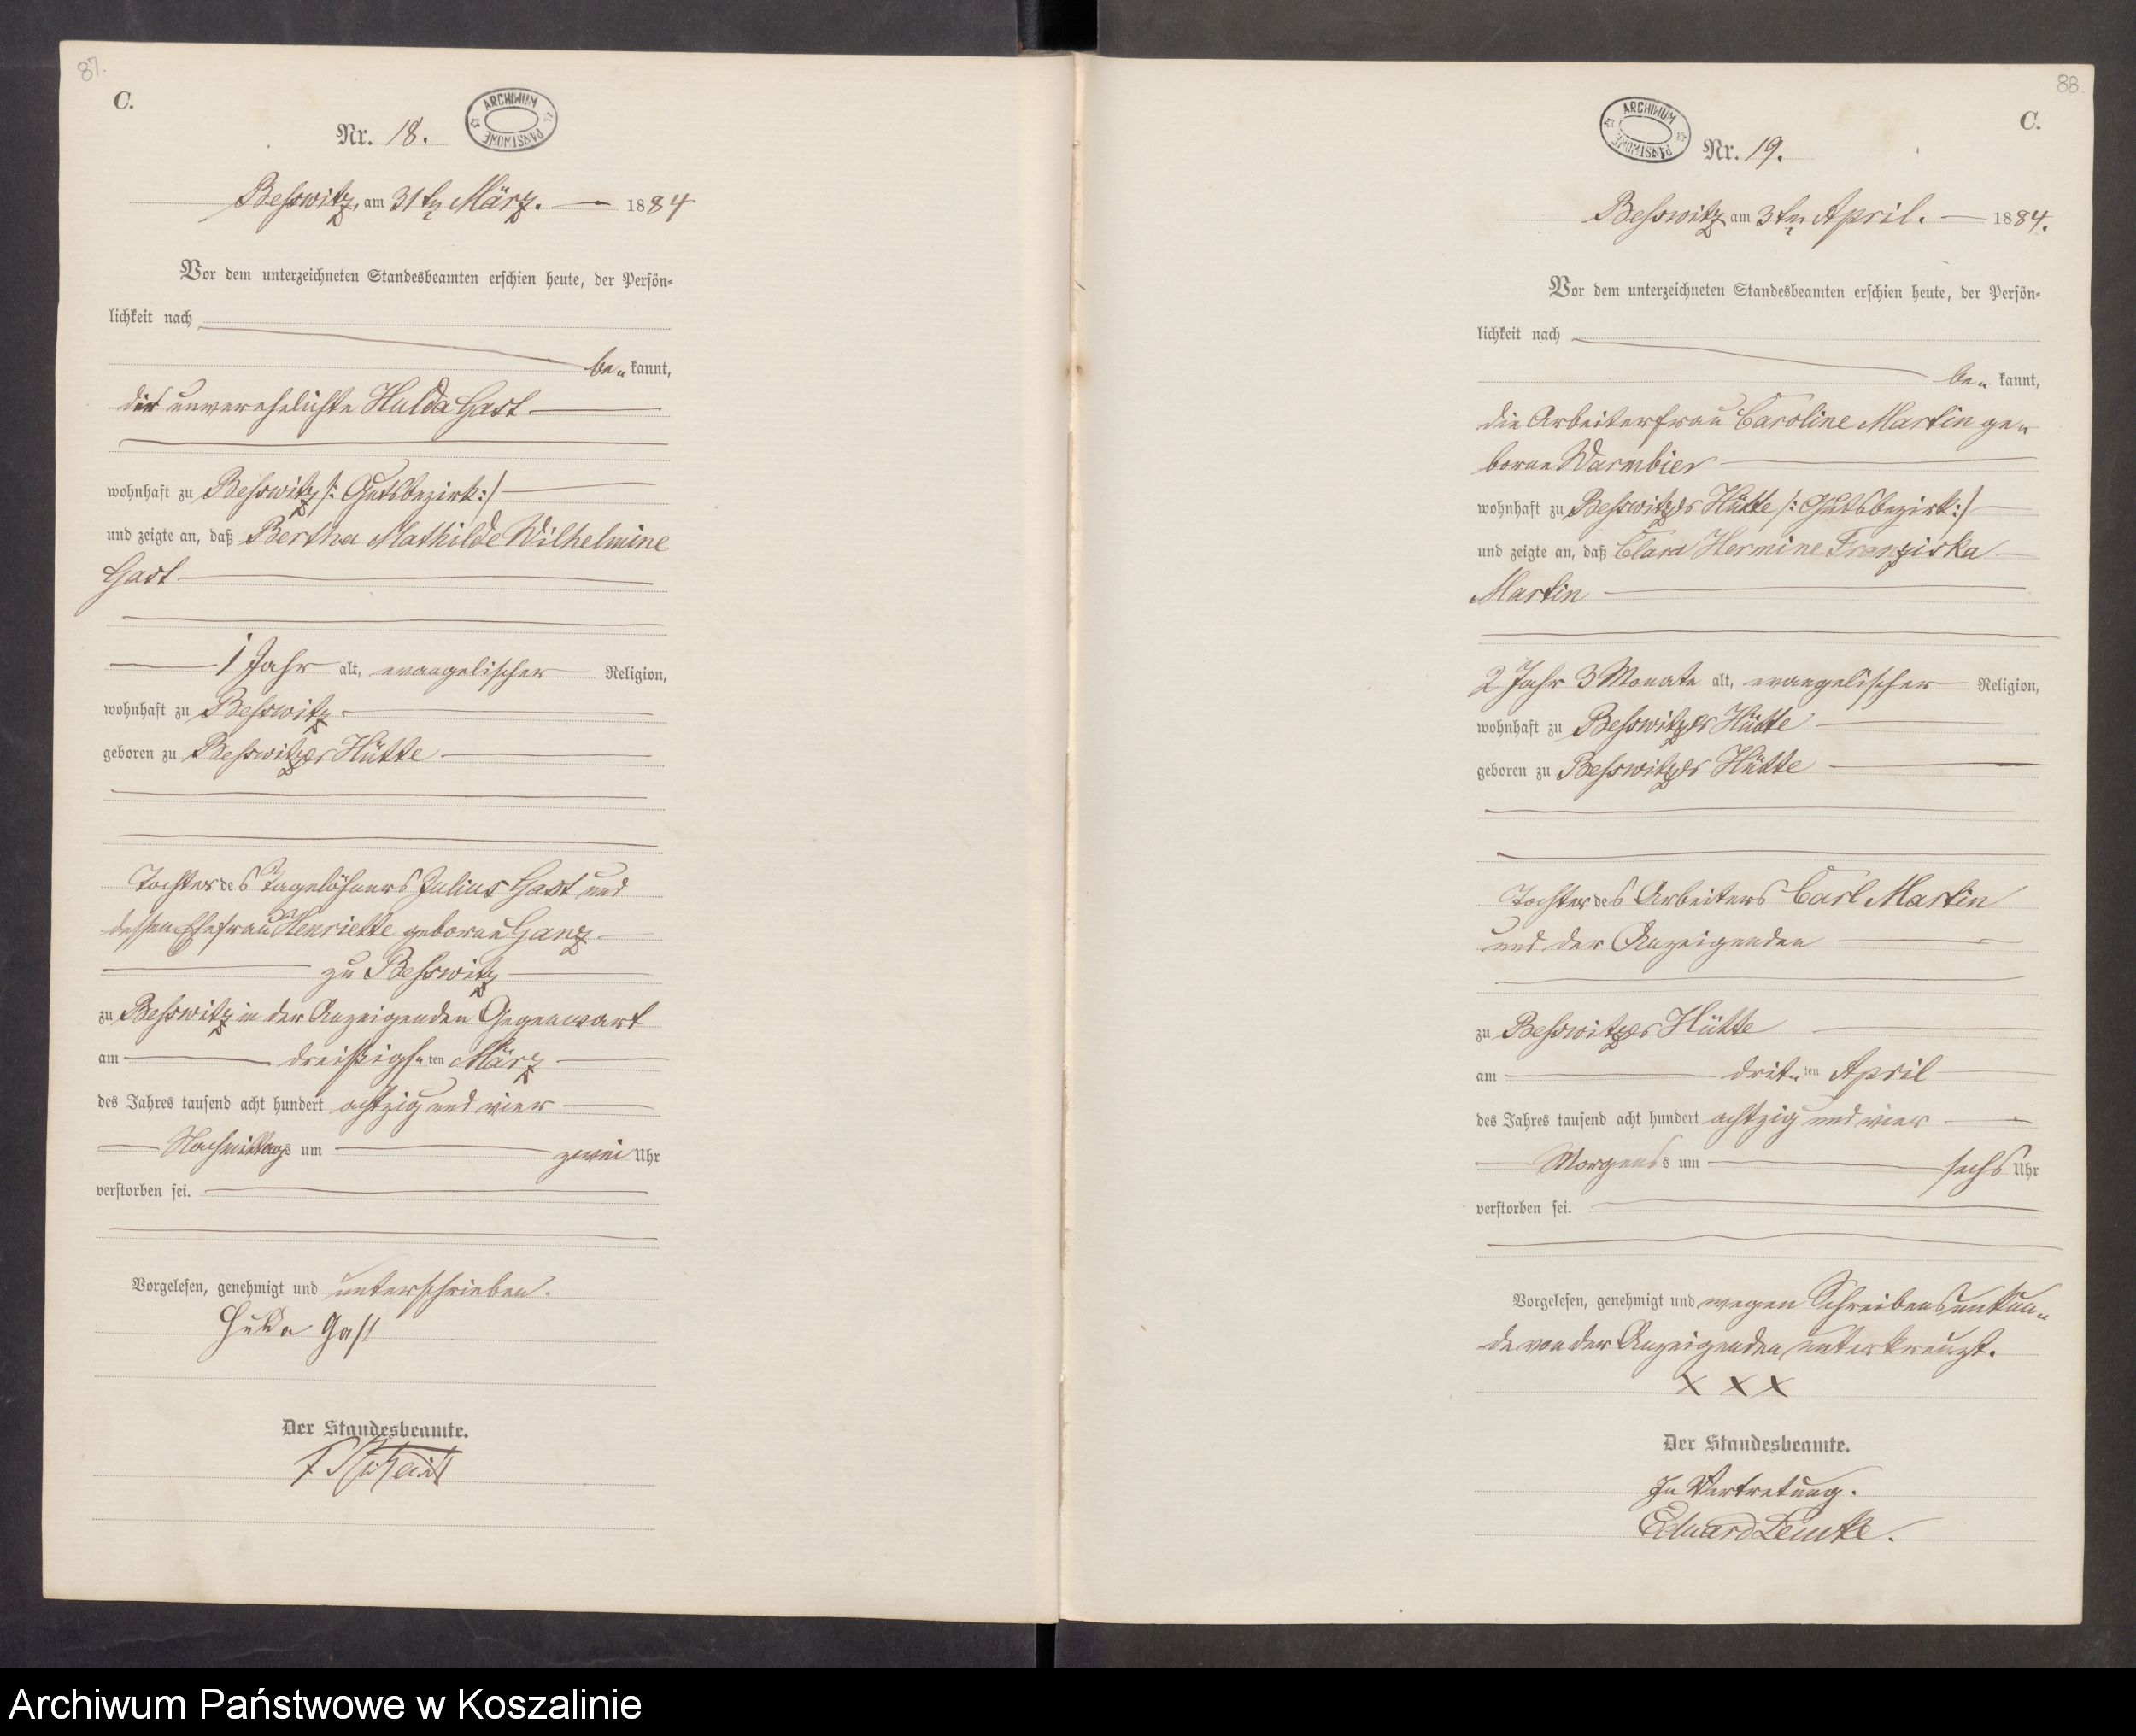 87.
C.
ARCHIWUM PAŃSTWOWE
Nr. 18.
Beßwitz, am 31ten März. 1884
Vor dem unterzeichneten Standesbeamten erschien heute, der Persön-
lichkeit nach
be- kannt,
die unverehelichte Hulda Gast
wohnhaft zu Beßwitz /: Gutsbezirk :/
und zeigte an, daß Bertha Mathilde Wilhelmine
Gast
1 Jahr alt, evangelischer Religion,
wohnhaft zu Beßwitz
geboren zu Beßwitzer Hütte
Tochter des Tagelöhners Julius Gast und
dessen Ehefrau Henriette geborne Ganz
zu Beßwitz
zu Beßwitz in der Anzeigenden Gegenwart
am dreißigs-ten März
des Jahres tausend acht hundert achtzig und vier
Nachmittags um zwei Uhr
verstorben sei.
Vorgelesen, genehmigt und unterschrieben.
Hulda Gast
Der Standesbeamte.
88.
C.
ARCHIWUM PAŃSTWOWE
Nr. 19.
Beßwitz am 3ten April. 1884.
Vor dem unterzeichneten Standesbeamten erschien heute, der Persön-
lichkeit nach
be- kannt,
die Arbeiterfrau Caroline Martin ge-
borne Warmbier
wohnhaft zu Beßwitzer Hütte /: Gutsbezirk :/
und zeigte an, daß Clara Hermine Franziska
Martin
2 Jahr 3 Monate alt, evangelischer Religion,
wohnhaft zu Beßwitzer Hütte
geboren zu Beßwitzer Hütte
Tochter des Arbeiters Carl Martin
und der Anzeigenden
zu Beßwitzer Hütte
am drit-ten April
des Jahres tausend acht hundert achtzig und vier
Morgens um sechs Uhr
verstorben sei.
Vorgelesen, genehmigt und wegen Schreibensunkun-
de von der Anzeigenden unterkreuzt.
X X X
Der Standesbeamte.
In Vertretung.
Eduard Lemke.
Archiwum Państwowe w Koszalinie